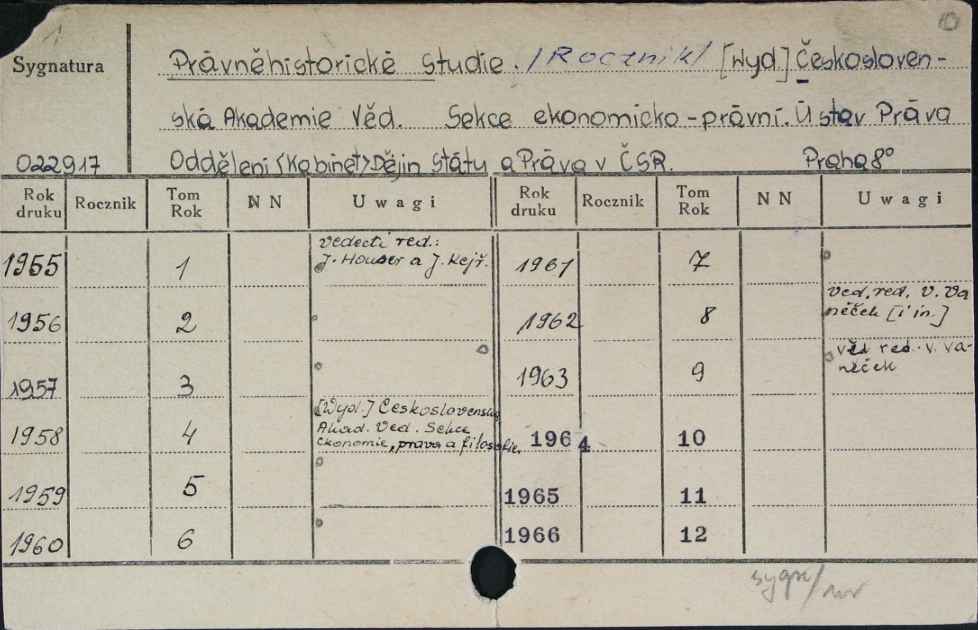 10
Sygnatura
Právněhistorické Studie. /Rocznik/ [Wyd] Českosloven-
ská Akademie Věd. Sekce ekonomicko-právní. Ústav Práva
022917 Oddělení <Kabinet> Dějin Státu a Práva v ČSR. Praha 8°
Rok druku Rocznik Tom Rok NN Uwagi Rok druku Rocznik Tom Rok NN Uwagi
vedecti red.:
1955 1 J. Houser a J. Kejř. 1961 7
ved. red. V. Va
1956 2 1962 8 něček [i in.]
věd red. V. Va-
1957 3 1963 9 něček
[Wyd.] Československá
1958 4 Akad. Ved. Sekce 1964 10
ekonomie, prava a filosofie.
1959 5 1965 11
1960 6 1966 12
sygn/